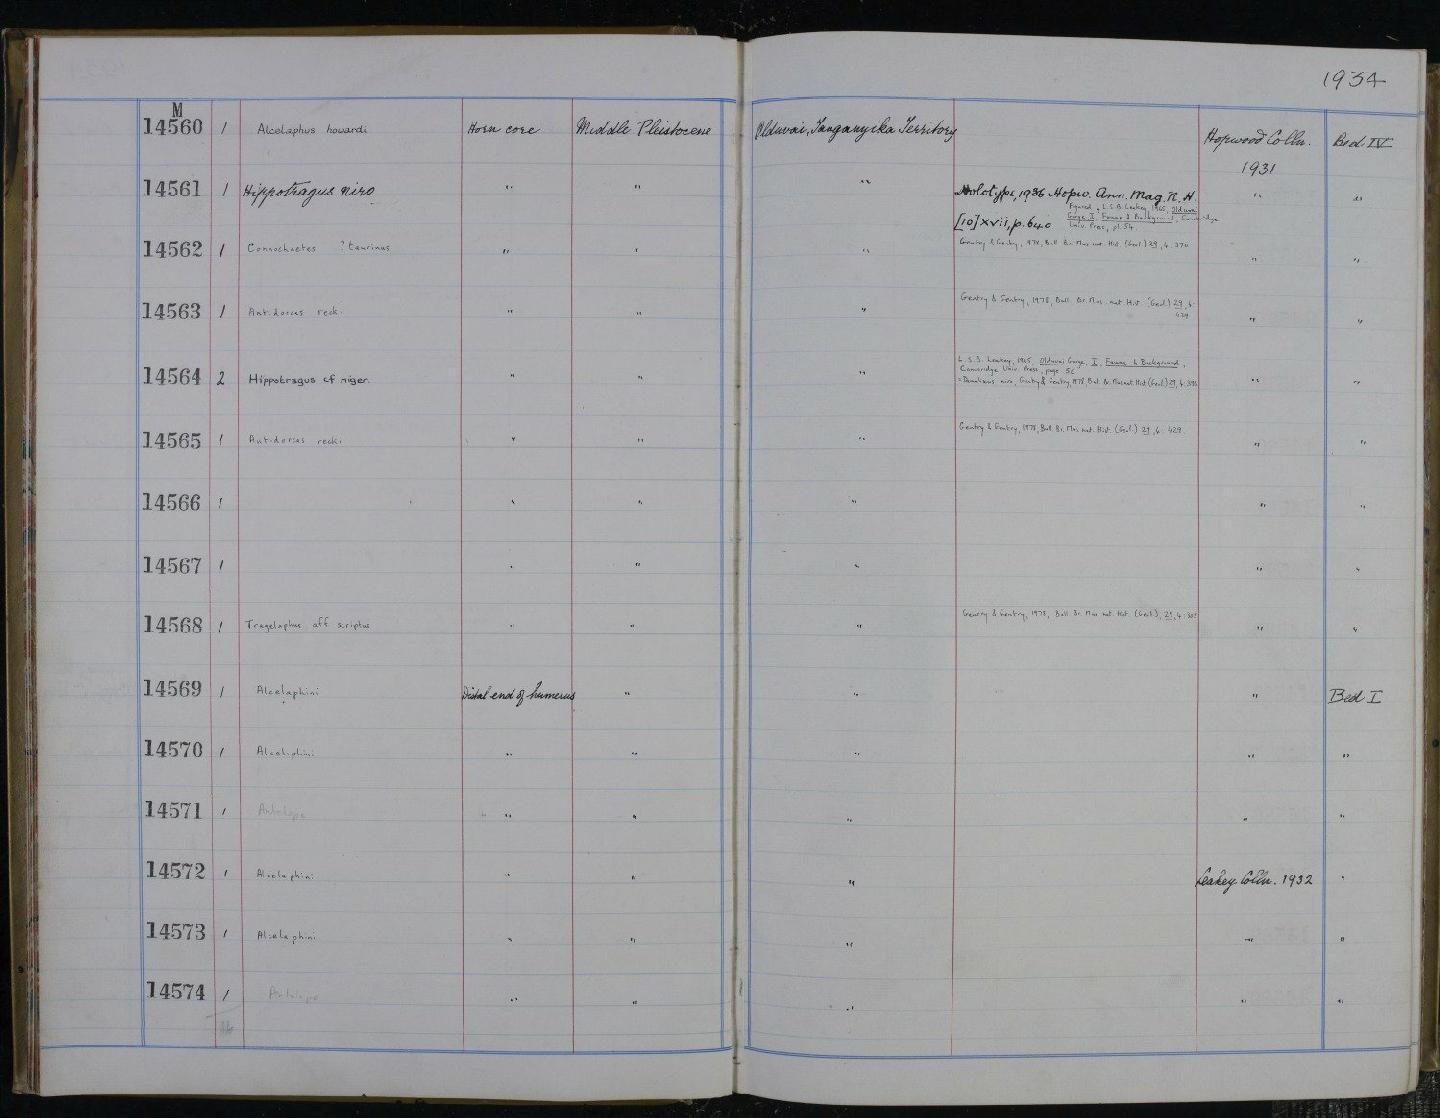 1934
M
14560 1 Alcelaphus howardi Horn core Middle Pleistocene Olduvai, Tanganyika Territory Hopwood Colln. 1931 Bed IV
14561 1 Hippotragus niro " " " Holotype, 1936 Hopw. Ann. Mag. N. H. " "
[10] xvii, p. 640
Figured, L.S.B. Leakey, 1965, Olduvai
Gorge I Fauna & Background, Cambridge
Univ. Press, pl. 54.
14562 1 Connochaetes ? taurinus " " " Gentry & Gentry, 1978, Bull. Br. Mus. nat. Hist. (Geol.) 29, 4: 370 " "
14563 1 Antidorcas recki " " " Gentry & Gentry, 1978, Bull. Br. Mus. nat. Hist. (Geol.) 29, 4:
429 " "
14564 2 Hippotragus cf niger. " " " L.S.B. Leakey, 1965 Olduvai Gorge, I, Fauna & Background,
Cambridge Univ. Press, page
Gentry & Gentry, 1978 Bull. Br. Mus. nat. Hist. (Geol.) 29, 4: " "
14565 1 Antidorcas recki " " " Gentry & Gentry, 1978, Bull. Br. Mus. nat. Hist. (Geol.) 29, 4: 429. " "
14566 1 " " " " "
14567 1 " " " " "
14568 1 Tragelaphus aff scriptus " " " Gentry & Gentry, 1978, Bull. Br. Mus. nat. Hist. (Geol.), 29, 4: " "
14569 1 Alcelaphini Distal end of humerus " " " Bed I
14570 1 Alcelaphini " " " " "
14571 1 Antelope " " " " "
14572 1 Alcelaphini " " " Leakey Colln. 1932 "
14573 1 Alcelaphini " " " " "
14574 1 Antelope " " " " "
16